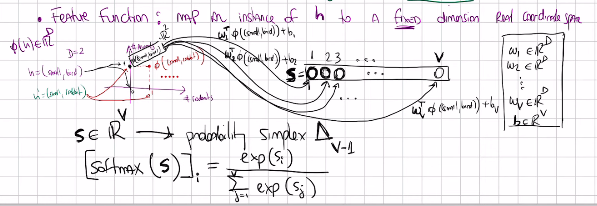 • Feature Function : map an instance of h to a fixed dimension Real coordinate space
φ(h) ∈ ℝ^D
D=2
h = (small, bird)
h' = (small, rodent)
# rodents
φ(small, bird)
φ(small, rodent)
......
w₁ᵀ φ(small, bird) + b₁
w₂ᵀ φ(small, bird) + b₂
1 2 3 ... V
S = 
...
w_vᵀ φ(small, bird) + b_v
w₁ ∈ ℝ^D
w₂ ∈ ℝ^D
⋮
w_v ∈ ℝ^D
b ∈ ℝ^V
S ∈ ℝ^V → probability simplex Δ_{V-1}
[softmax (S)]_i = exp(s_i) / Σ_{j=1}^{V} exp(s_j)